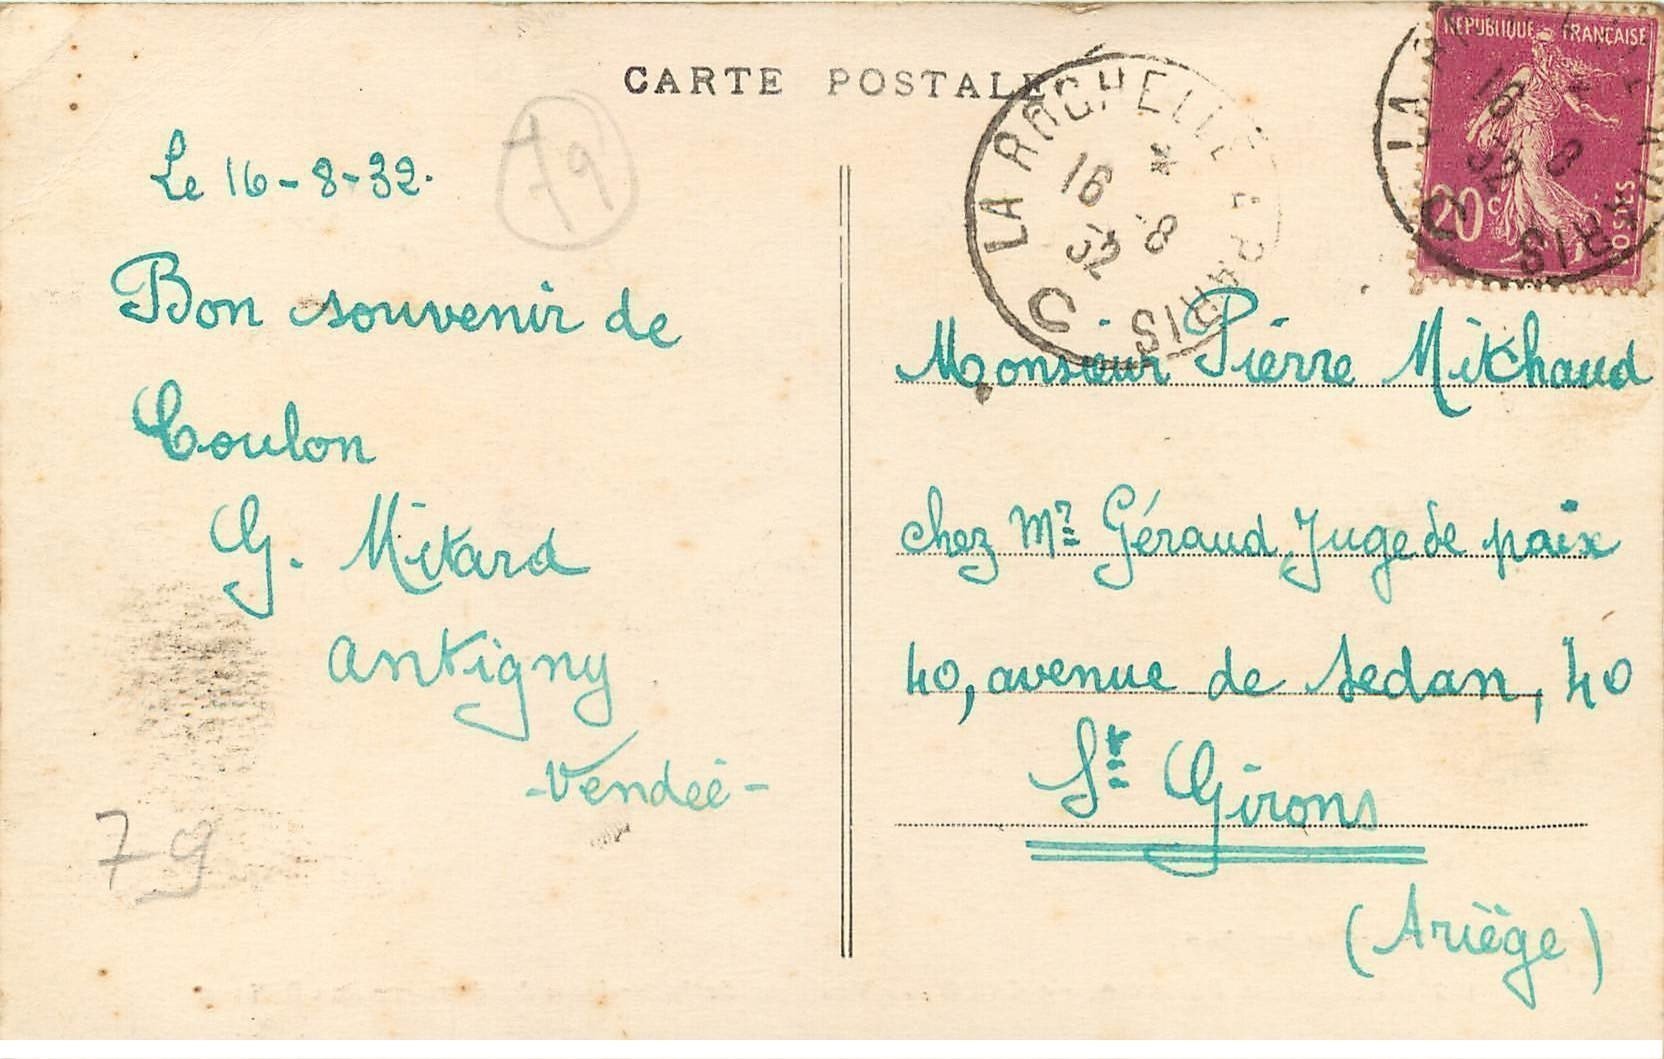 CARTE POSTALE
79
Le 16-8-32.
Bon souvenir de
Coulon
G. Mitard
Antigny
-Vendée-
79
LA ROCHELLE A PARIS
16 -8
32
C
REPUBLIQUE FRANÇAISE
20c
POSTES
16 8
32
Monsieur Pierre Mikhaud
chez Mr Géraud, Juge de paix
40, avenue de Sedan, 40
St Girons
(Ariège)